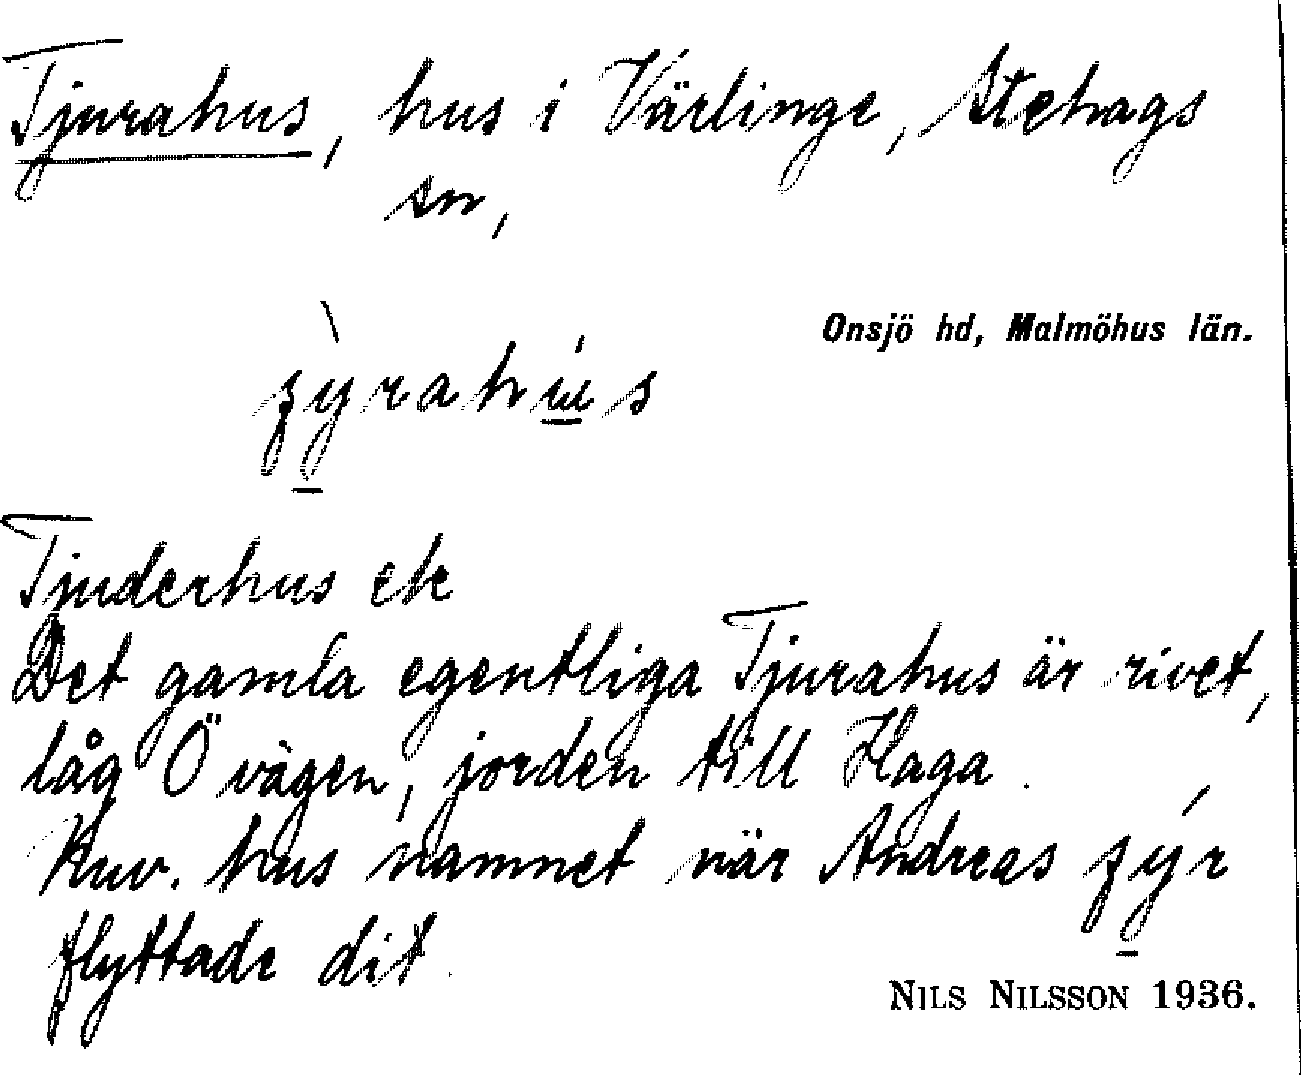 Tjurahus, hus i Värlinge, Stehags
sn,
Onsjö hd, Malmöhus län.
Tjuderhus ek
Det gamla egentliga Tjurahus är rivet,
låg Ö vägen, jorden till Haga.
Nuv. hus namnet när Andreas
flyttade dit.
NILS NILSSON 1936.